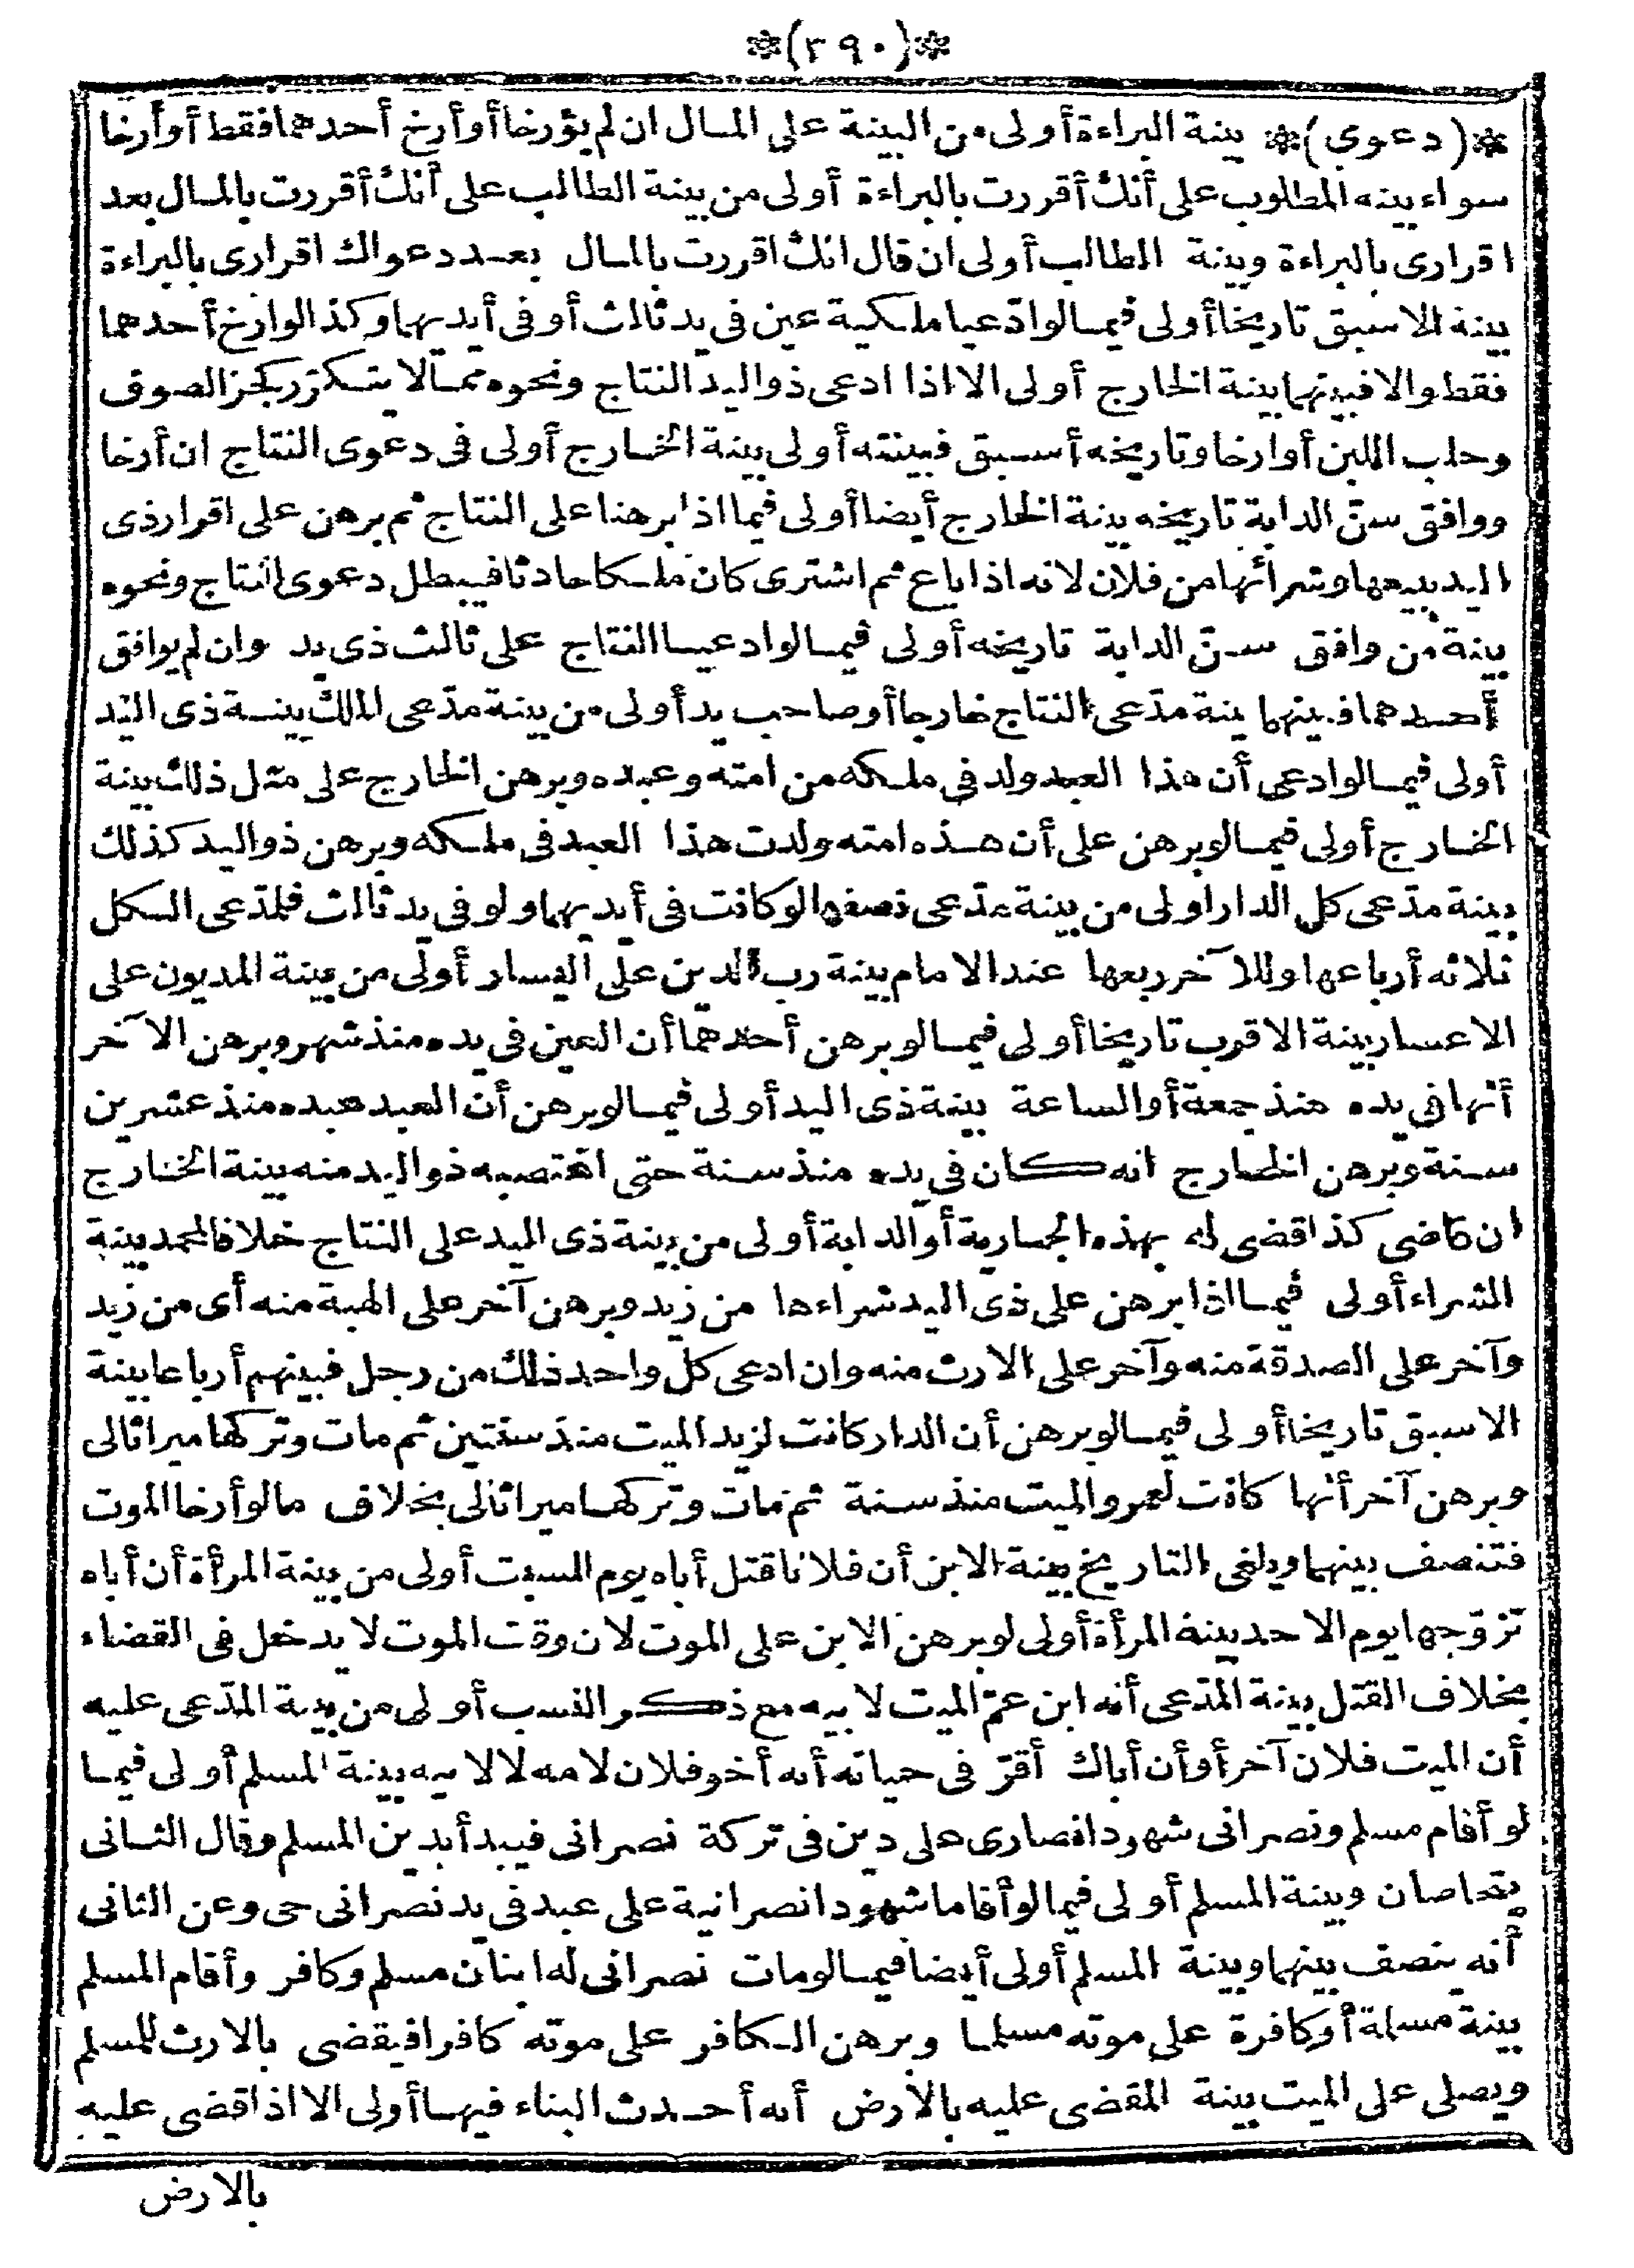 *(٣٩٠)*
*(دعوى)* بينة البراءة أولى من البينة على المال ان لم يؤرخا أو أرخ أحدهما فقط أو أرخا
سواء بينه المطلوب على أنك أقررت بالبراءة أولى من بينة الطالب على أنك أقررت بالمال بعد
اقرارى بالبراءة وبينة الطالب أولى ان قال انك اقررت بالمال بعد دعواك اقرارى بالبراءة
بينة الاسبق تاريخا أولى فيما لو ادّعيا ملكية عين في يد ثالث أو فى أيديهما وكذا لو ارخ أحدهما
فقط والا فبينهما بينة الخارج أولى الا اذا ادعى ذو اليد النتاج ونحوه مما لا يتكرّر كجز الصوف
وحلب اللبن أو ارخا وتاريخه أسبق فبينته أولى بينة الخارج أولى فى دعوى النتاج ان أرخا
ووافق سنّ الدابة تاريخه بينة الخارج أيضا أولى فيما اذا برهنا على النتاج ثم برهن على اقرار ذى
اليد ببيعها وشرائها من فلان لانه اذا باع ثم اشترى كان ملكا حادثا فيبطل دعوى النتاج ونحوه
بينة من وافق سنّ الدابة تاريخه أولى فيما لو ادعيا النتاج على ثالث ذى يد وان لم يوافق
أحدهما فبينهما بينة مدّعى النتاج خارجا أو صاحب يد أولى من بينة مدّعى الملك بينة ذى اليد
أولى فيما لو ادعى أن هذا العبد ولد فى ملكه من امته وعبده وبرهن الخارج على مثل ذلك بينة
الخارج أولى فيما لو برهن على أن هذه امته ولدت هذا العبد فى ملكه وبرهن ذو اليد كذلك
بينة مدّعى كل الدار اولى من بينة مدّعى نصفها لو كانت فى أيديهما ولو فى يد ثالث فلمدّعى الكل
ثلاثه أرباعها وللآخر ربعها عند الامام بينة رب الدين على اليسار أولى من بينة المديون على
الاعسار بينة الاقرب تاريخا أولى فيما لو برهن أحدهما أن العين فى يده منذ شهر وبرهن الآخر
أنها فى يده منذ جمعة أو الساعة بينة ذى اليد أولى فيما لو برهن أن العبد عبده منذ عشرين
سنة وبرهن الخارج انه كان فى يده منذ سنة حتى اغتصبه ذو اليد منه بينة الخارج
ان قاضى كذا قضى له بهذه الجارية أو الدابة أولى من بينة ذى اليد على النتاج خلافا لمحمد بينة
الشراء أولى فيما اذا برهن على ذى اليد شراءها من زيد وبرهن آخر على الهبة منه أى من زيد
وآخر على الصدقة منه وآخر على الارث منه وان ادعى كل واحد ذلك من رجل فبينهم أرباعا بينة
الاسبق تاريخا أولى فيما لو برهن أن الدار كانت لزيد الميت منذ سنتين ثم مات وتركها ميراثا لى
وبرهن آخر أنها كانت لعمرو الميت منذ سنة ثم مات وتركها ميراثا لى بخلاف ما لو أرخا الموت
فتنصف بينهما ويلغى التاريخ بينة الابن أن فلانا قتل أباه يوم السبت أولى من بينة المرأة أن أباه
تزوّجها يوم الاحد بينة المرأة أولى لو برهن الابن على الموت لان وقت الموت لا يدخل فى القضاء
بخلاف القتل بينة المدّعى أنه ابن عمّ الميت لابيه مع ذكر النسب أولى من بينة المدّعى عليه
أن الميت فلان آخر أو أن أباك أقرّ فى حياته أنه أخو فلان لامه لا لابيه بينة المسلم أولى فيما
لو أقام مسلم ونصرانى شهودا نصارى على دين فى تركة نصرانى فيبدأ بدين المسلم وقال الثانى
يتحاصان وبينة المسلم أولى فيما لو أقاما شهودا نصرانية على عبد فى يد نصرانى حى وعن الثانى
أنه ينصف بينهما وبينة المسلم أولى أيضا فيما لو مات نصرانى له ابنان مسلم وكافر وأقام المسلم
بينة مسلمة أو كافرة على موته مسلما وبرهن الكافر على موته كافرا فيقضى بالارث للمسلم
ويصلى على الميت بينة المقضى عليه بالارض أنه أحدث البناء فيها أولى الا اذا قضى عليه
بالارض